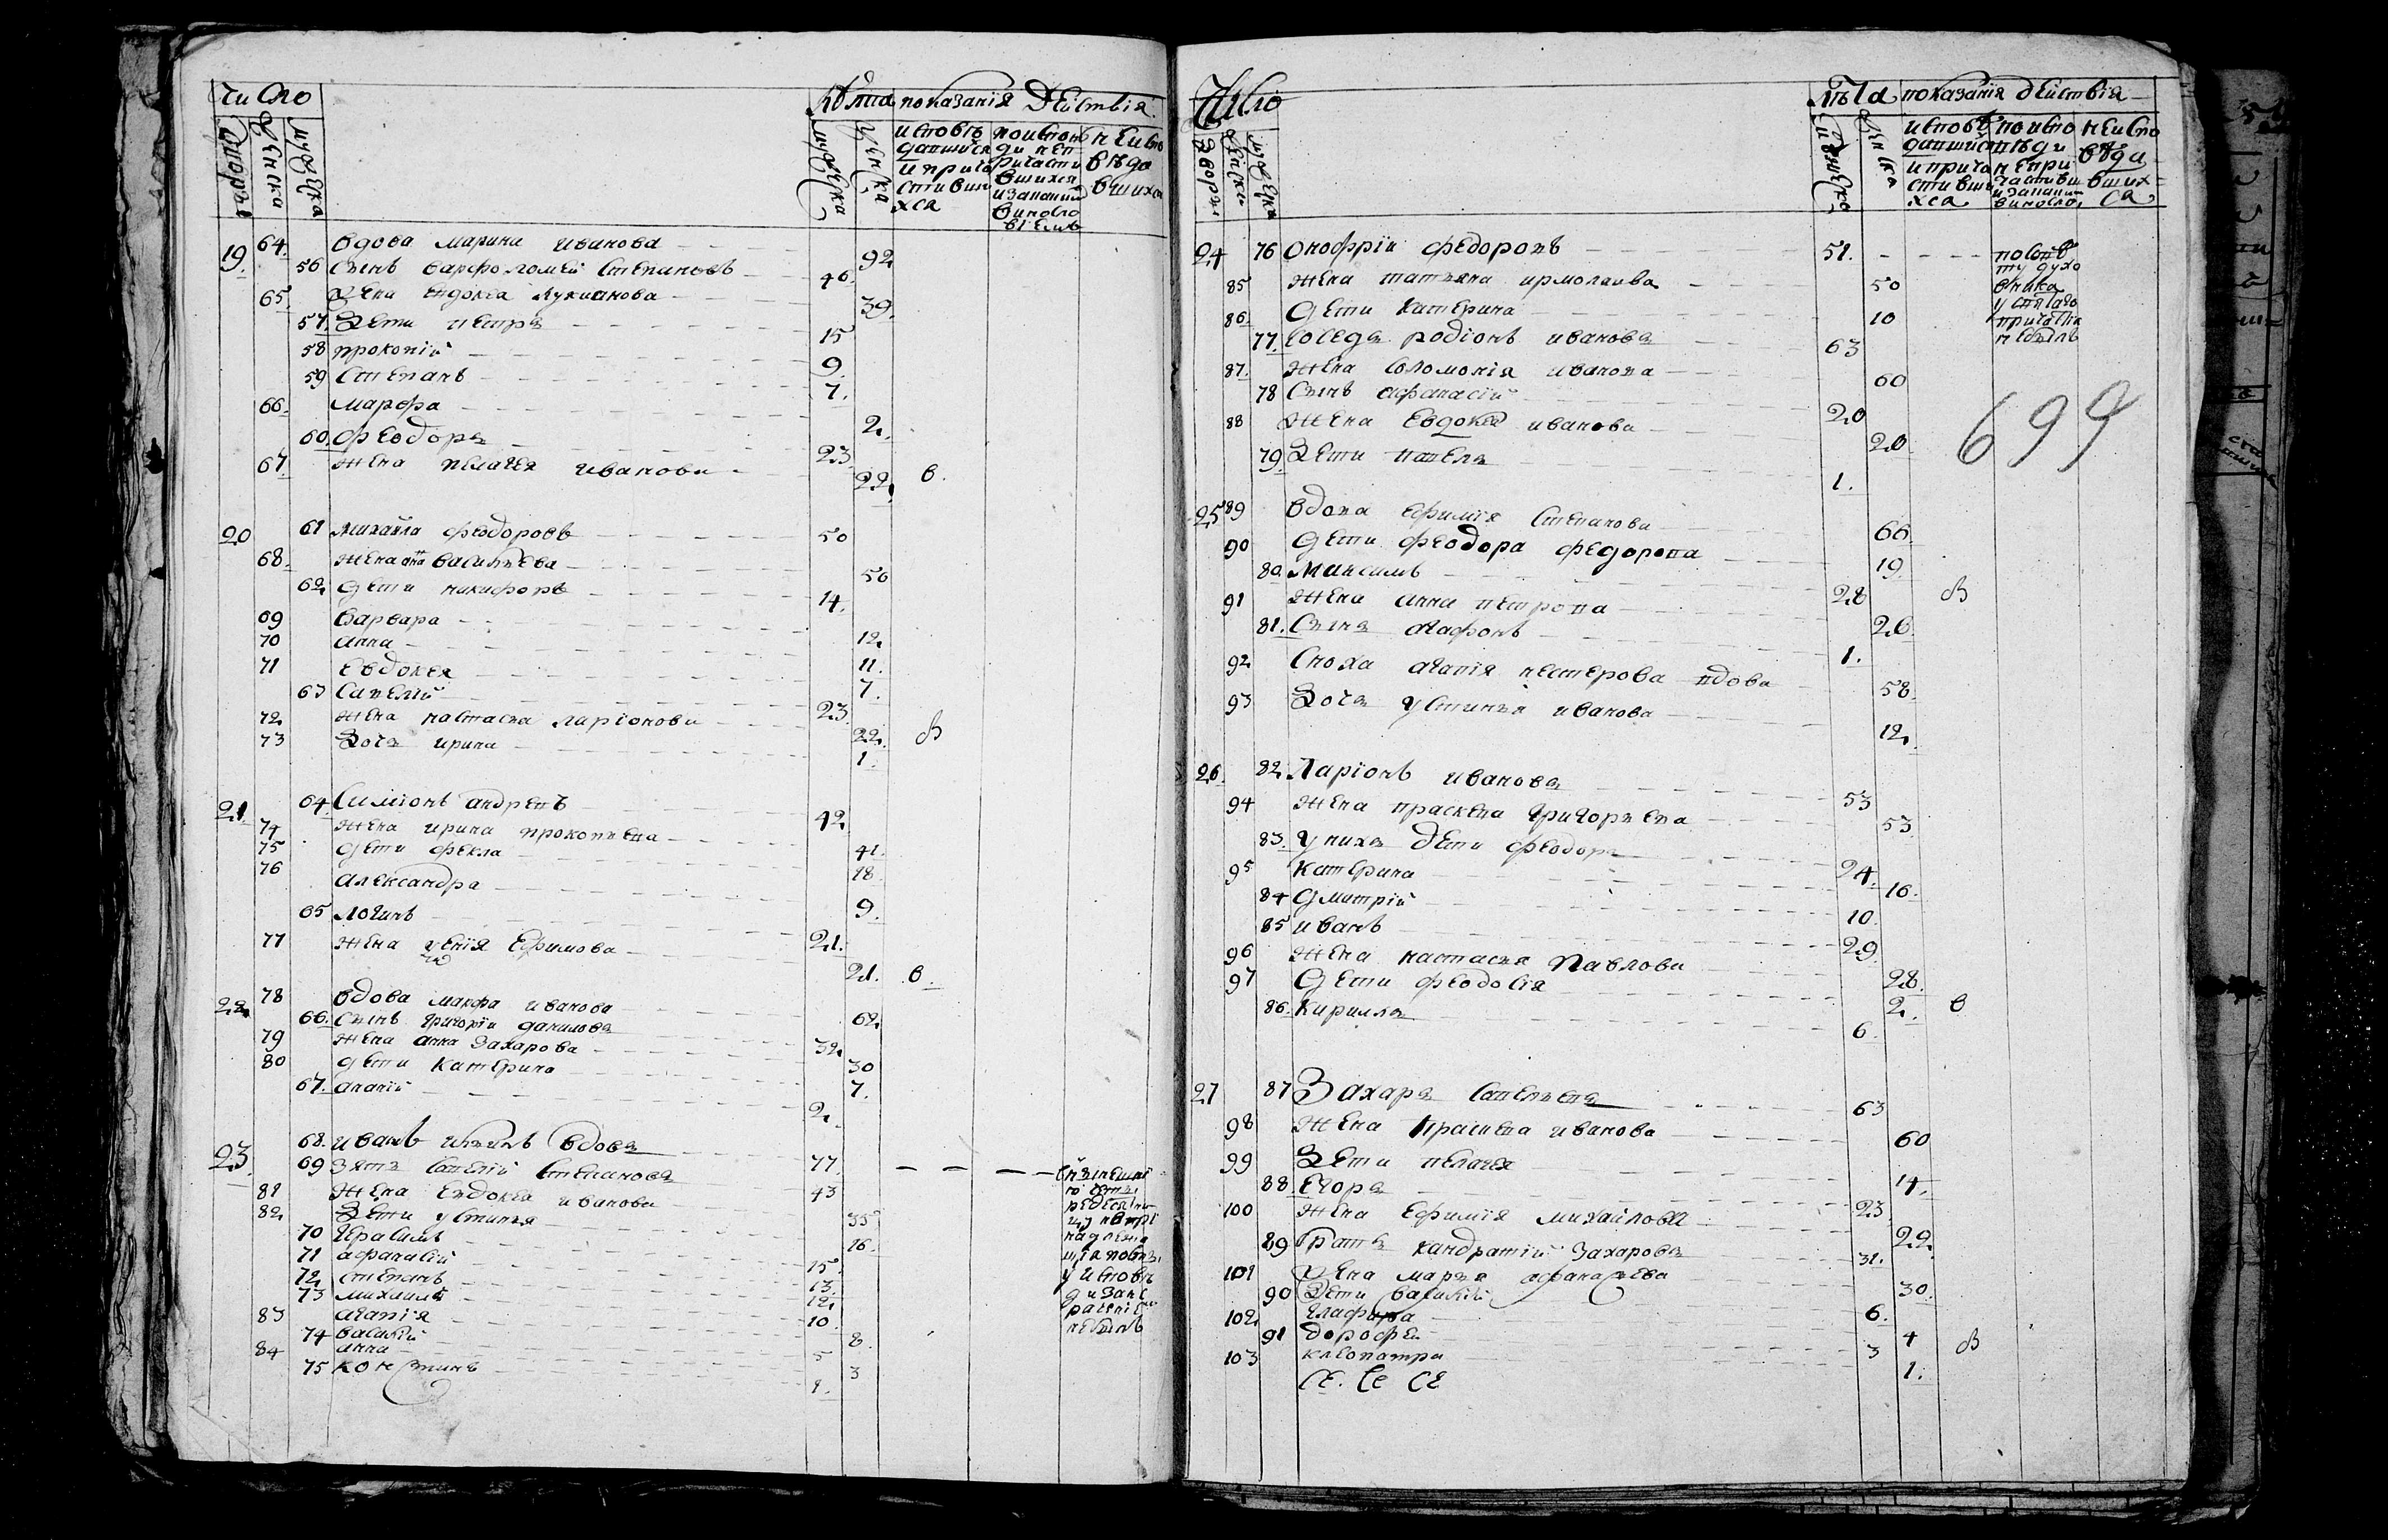 Число
Лѣта показанїя дѣйствїя
дворы женска мужеска
мужеска женска
исповѣдавшися и причастившихся
не исповѣдавшихся
19 64. вдова марина иванова 92
56 сынъ варфоломей степановъ 46
65. жена евдокея лукианова 39.
57. дети петръ 15
58 прокопий 9
59 степанъ 7.
66. марфа 2.
60. феодоръ 23
67. жена пелагея иванова 22 в.
20 61 михайла феодоровъ 50
68. жена анна васильева 50
62 дети никифоръ 14.
69 варвара 12
70 анна 11.
71 евдокея 7.
63 савелий 23
72 жена настасья ларїонова 22. в
73 дочь ирина 1.
21. 64. симїонъ андреевъ 42
74 жена ирина прокопьева 41.
75 дети фекла 18.
76 александра 9.
65 логинъ 21.
77 жена ѯенїя ефимова 21. в.
22 78 вдова макфа иванова 62
66. сынъ григорїй даниловъ 32
79 жена анна захарова 30
80 дети катерина 7.
67. ананий 2.
23. 68. иванъ вдовъ 77.
69 зять савелий степановъ 43
81 жена евдокея иванова 35
82 дети устинья 16.
70 герасимъ 15.
71 афанасий 13.
72 степанъ 12
73 михаила 10.
83 агапїя 8.
74 василий 5
84 анна 3
75 констинъ 1.
Число
Лѣта показанїя дѣйствїя
дворы женска мужеска
мужеска женска
исповѣдавшися и причастившихся
не исповѣдавшихся
24 76 онофрїи федоровъ 51.
85 жена татьяна ирмолаива 50
86. дети катерина 10
77. соседъ родїонъ ивановъ 63
87. жена соломонїя иванова 60
78 сынъ афанасий 20
88 жена евдокея иванова 20
79. дети павелъ 1.
у святаго причастїя небылъ
699
25 89 вдова ефимїя степанова 66.
90 дети феодора федорова 19
80. максимъ 28 в
91 жена анна петрова 26.
81. сынъ агафонъ 1.
92 сноха агапїя нестерова вдова 58.
93 дочь устинья иванова 12.
26. 82. ларїонъ ивановъ 53
94 жена прасковя григорьева 53.
83. у нихъ дети феодоръ 24.
95 катерина 16.
84 дмитрїй 10.
85 иванъ 29
96 жена настасья павлова 28.
97 дети феодосїя 2. в
86. кириллъ 6.
27 87 захаръ савельевъ 63
98 жена иванова 60
99 дети пелагея 14.
88. егоръ 23
100 жена ефимїя михайлова 22.
89 братъ кандратий захаровъ 31.
101 жена марья афанасьева 30.
90 дети василий 6.
102. глафира 4
91 дорофе 3 в
103 клеопатра 1.
се. се се